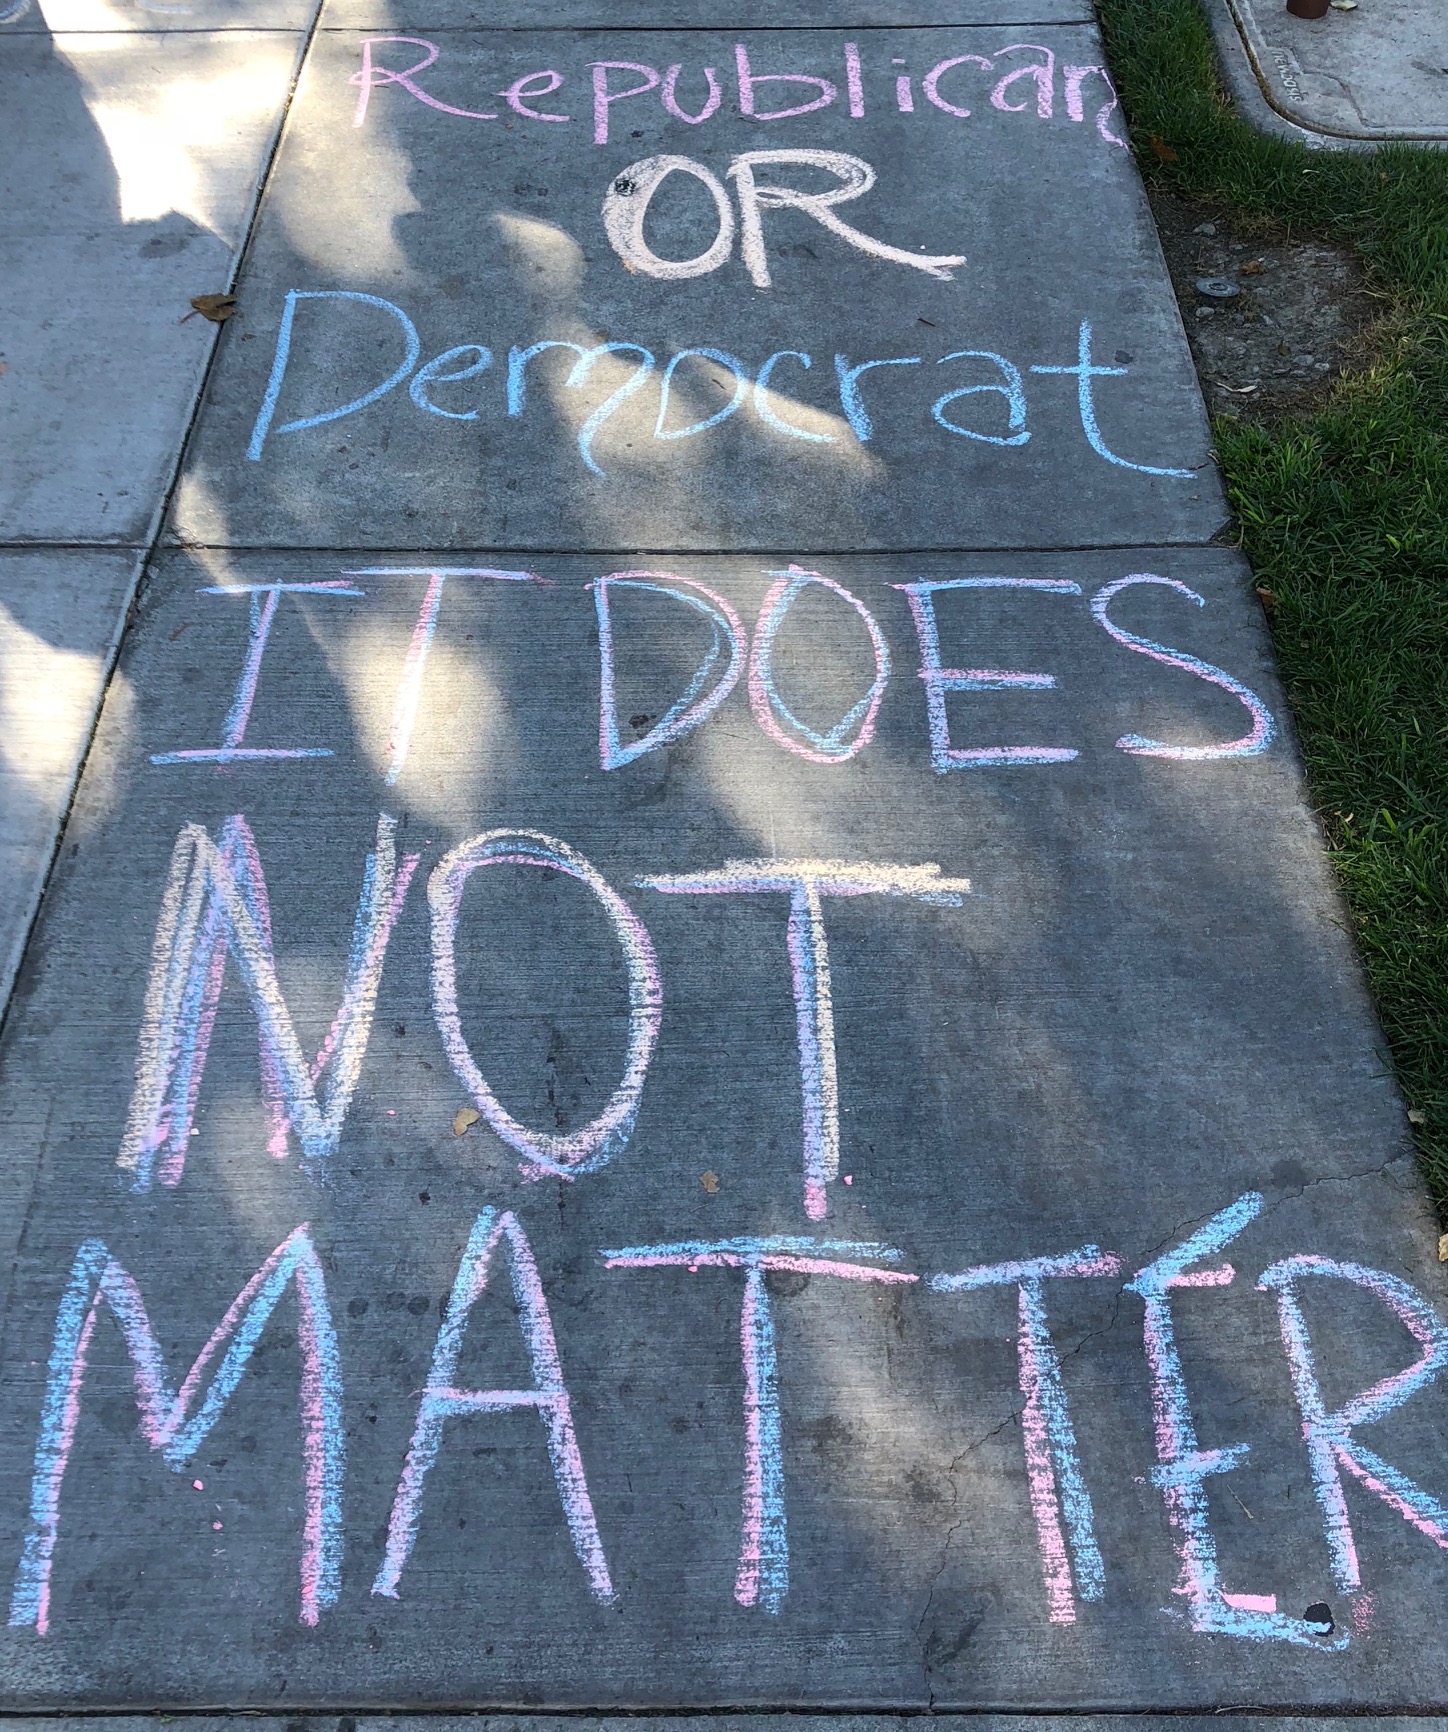 Republican
OR
Democrat
IT DOES
NOT
MATTER